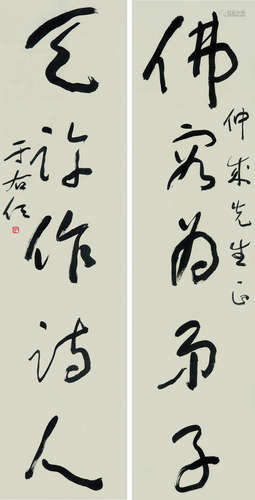 佛容為弟子
仲成先生正
天許作詩人
于右任